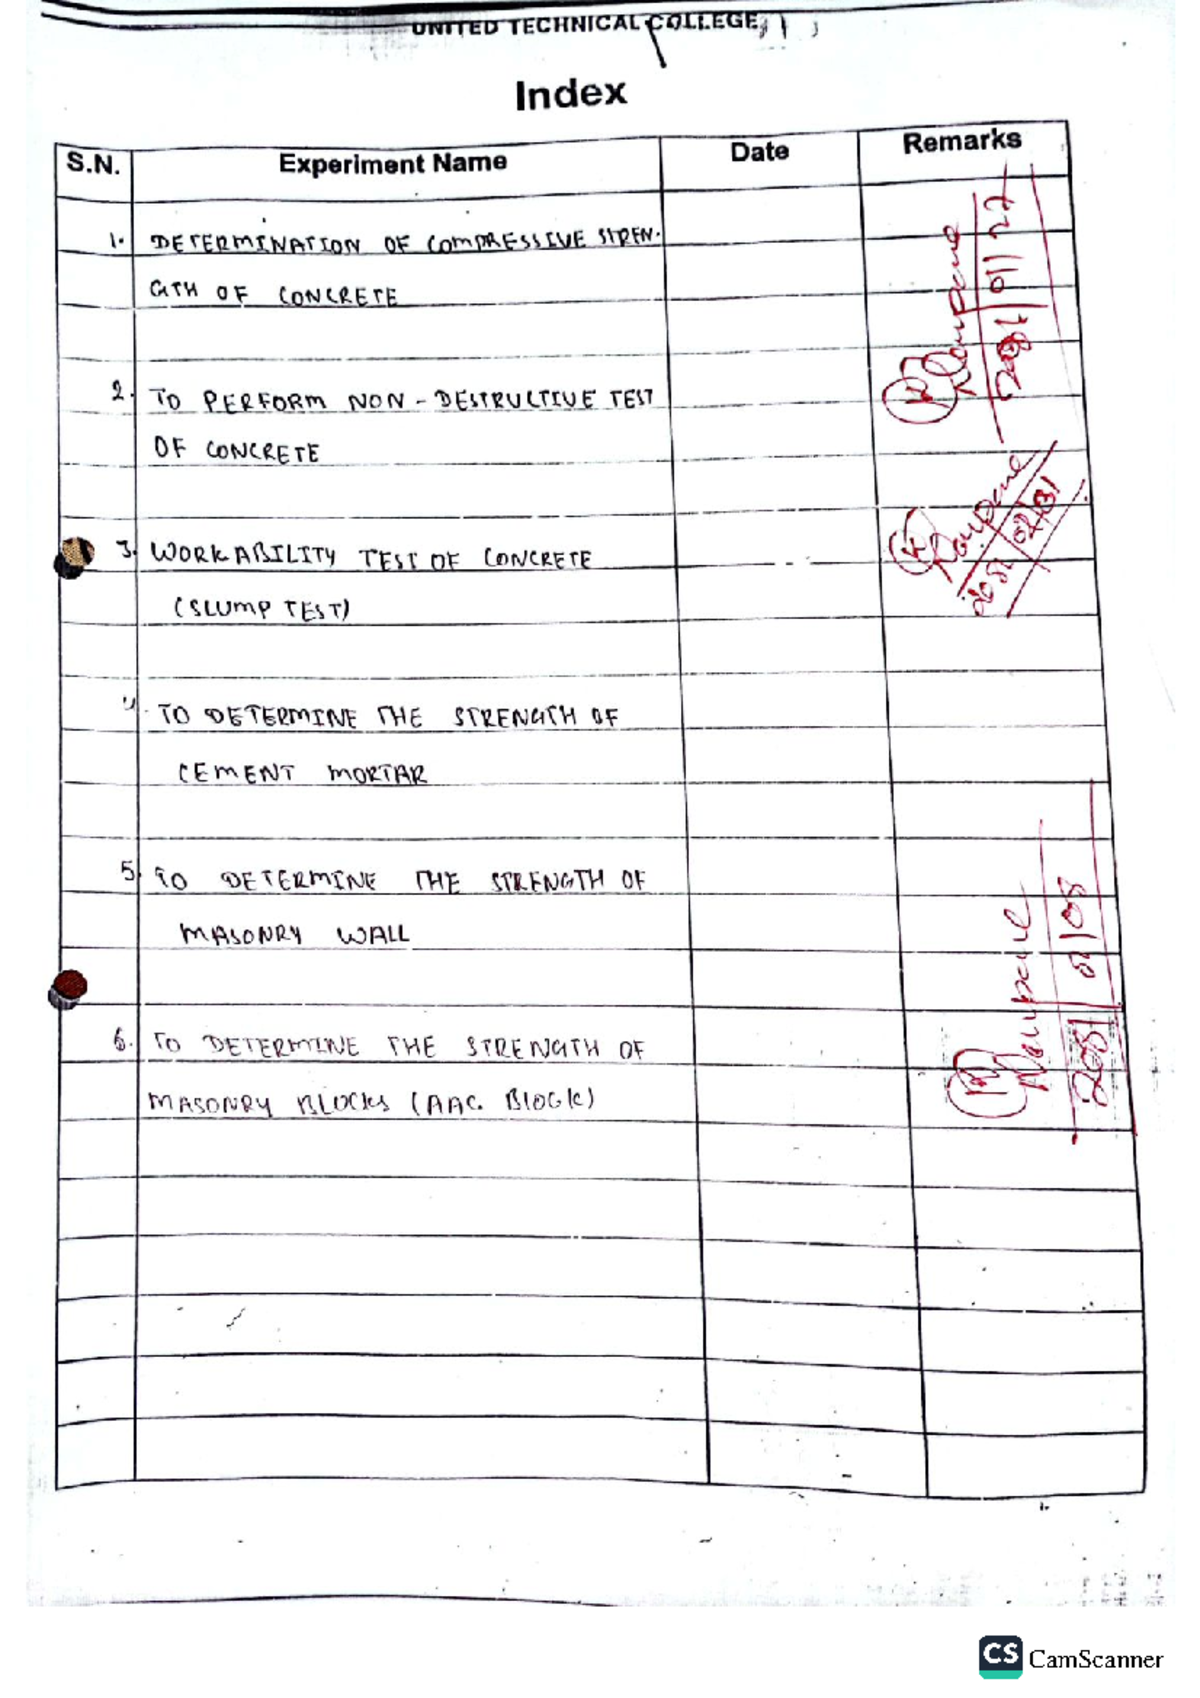 UNITED TECHNICAL COLLEGE
Index
S.N. Experiment Name Date Remarks
1. DETERMINATION OF COMPRESSIVE STREN-
GTH OF CONCRETE
2. TO PERFORM NON-DESTRUCTIVE TEST
OF CONCRETE
3. WORKABILITY TEST OF CONCRETE
(SLUMP TEST)
4. TO DETERMINE THE STRENGTH OF
CEMENT MORTAR
5. TO DETERMINE THE STRENGTH OF
MASONRY WALL
6. TO DETERMINE THE STRENGTH OF
MASONRY BLOCKS (AAC. BlOCK)
CS CamScanner